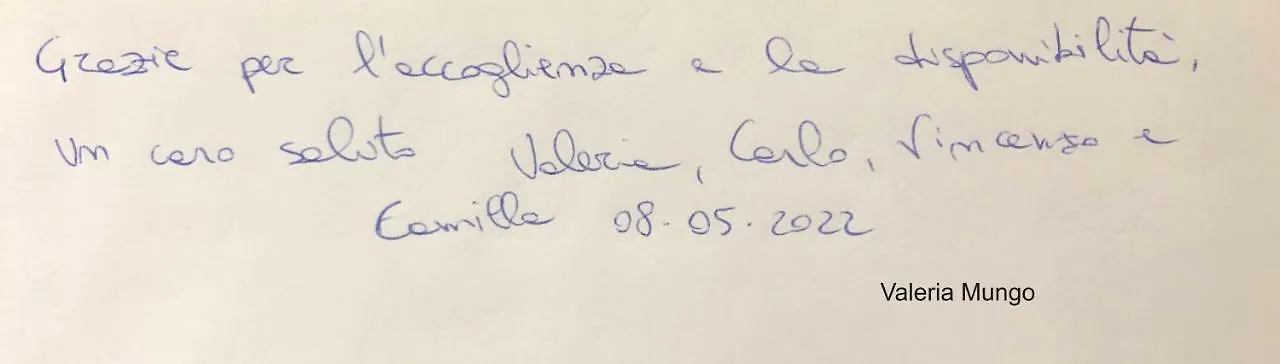 Grazie per l'accoglienza e la disponibilità,
un caro saluto Valeria, Carlo, Vincenzo e
Camilla 08.05.2022
Valeria Mungo